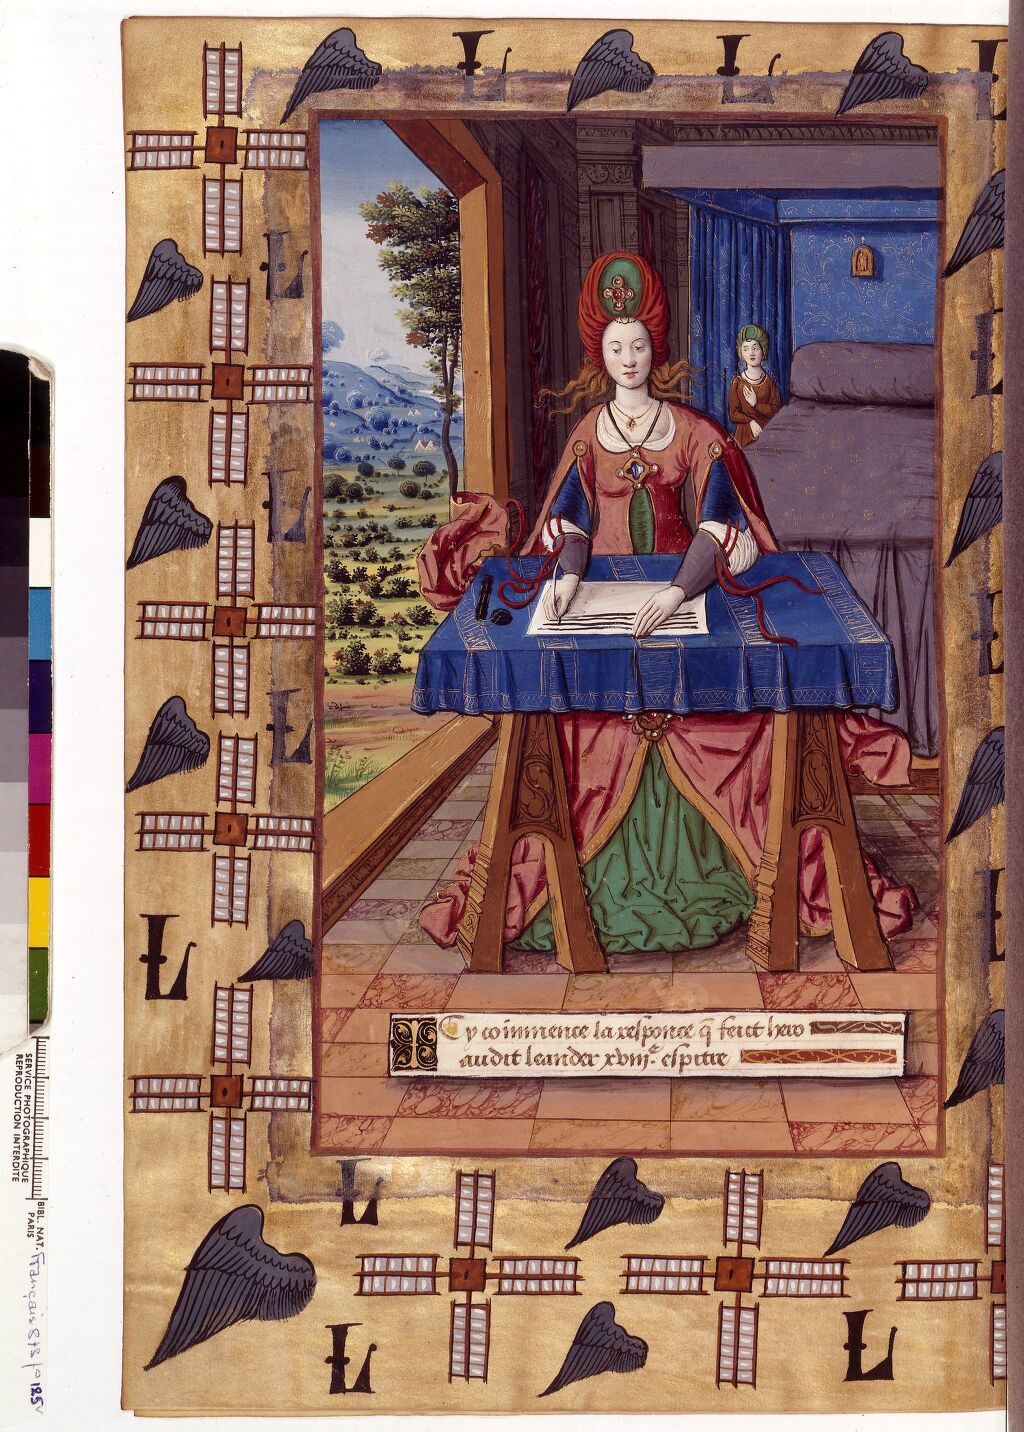 L L L L
L
L
L
L
L
L
L
L
L
L
Cy commence la responce q̃ feict hero
audit leander xviijᵉ. espitre
L
L L
SERVICE PHOTOGRAPHIQUE
REPRODUCTION INTERDITE
BIBL. NAT.
PARIS
Français 873 fº 125v